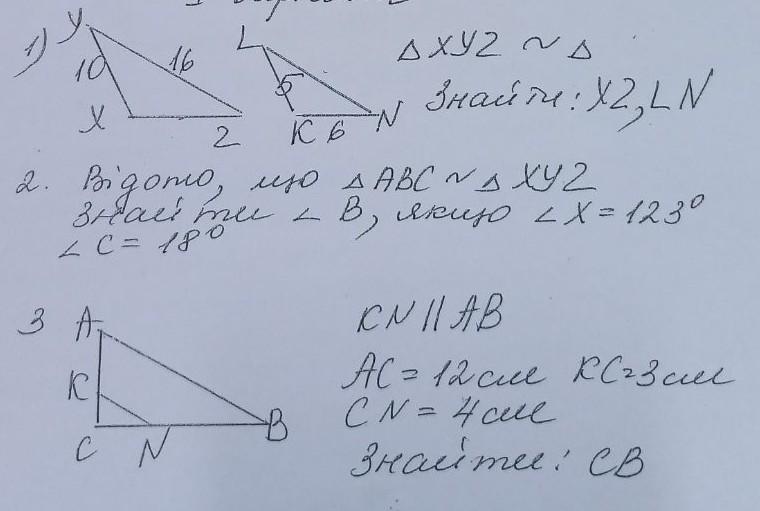 1) Y 10 16 X Z L 5 K 6 N
△ XYZ ~ △
Знайти: XZ, LN
2. Відомо, що △ ABC ~ △ XYZ
Знайти ∠ B, якщо ∠ X = 123°
∠ C = 18°
3 A K C N B
KN || AB
AC = 12 см KC = 3 см
CN = 4 см
Знайти: CB